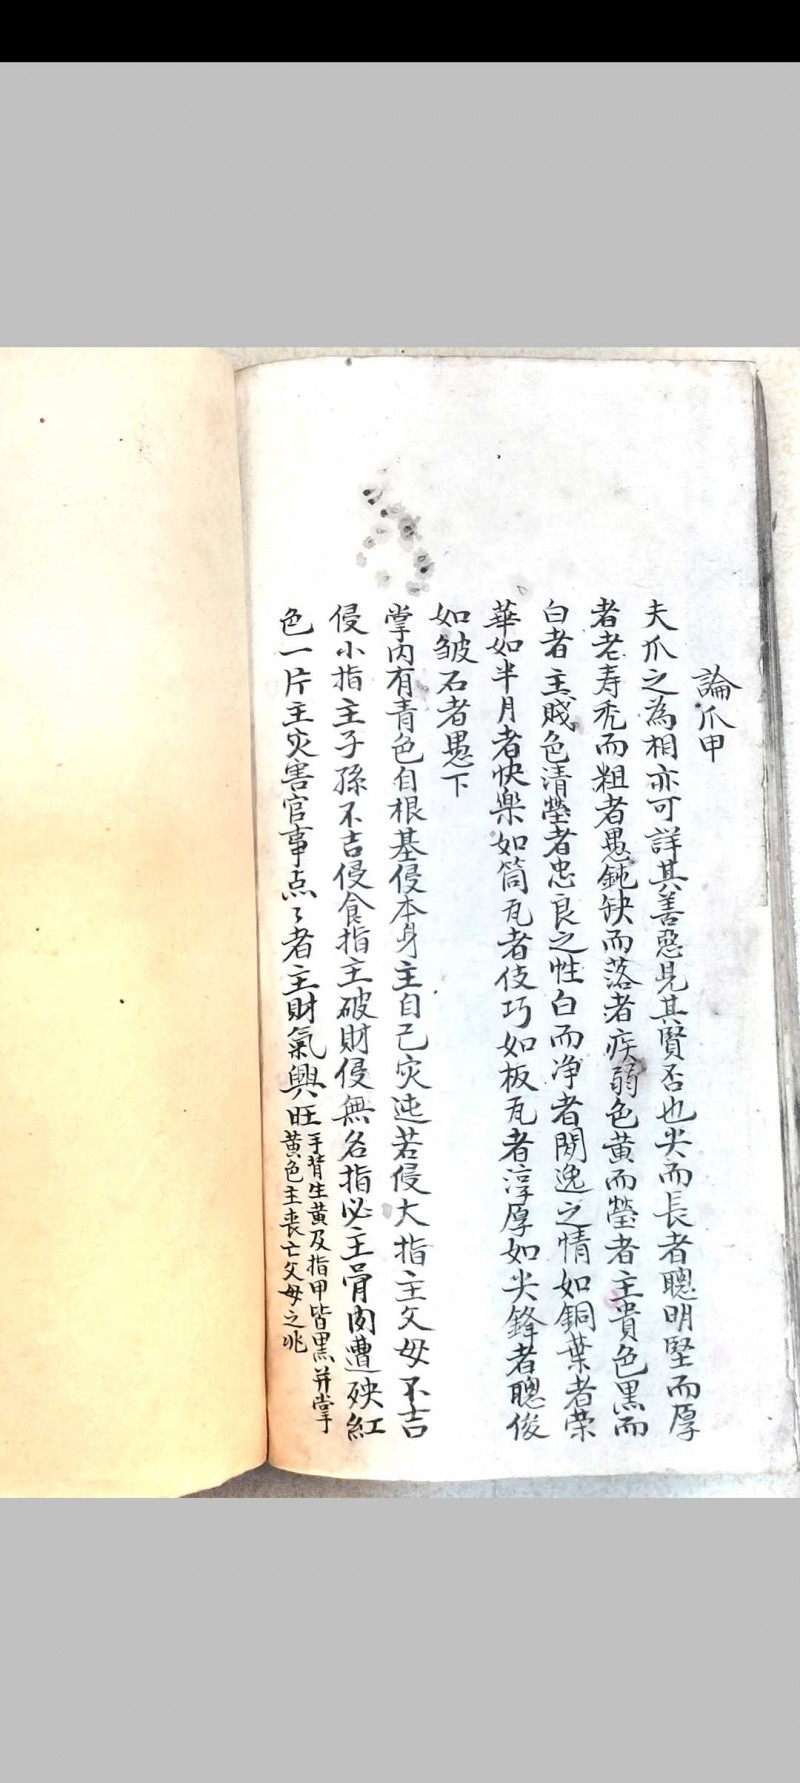 論爪甲
夫爪之為相亦可詳其善惡見其賢否也尖而長者聰明堅而厚
者老寿禿而粗者愚鈍缺而落者疾弱色黃而瑩者主貴色黑而
白者主賤色清瑩者忠良之性白而净者閑逸之情如銅葉者荣
華如半月者快樂如筒瓦者伎巧如板瓦者淳厚如尖鋒者聰俊
如皱石者愚下
掌内有青色自根基侵本身主自己灾迍若侵大指主父母不吉
侵小指主子孫不吉侵食指主破財侵無名指必主骨肉遭殃紅
色一片主灾害官事点々者主財氣興旺
手背生黄及指甲皆黑并掌
黄色主丧亡父母之兆